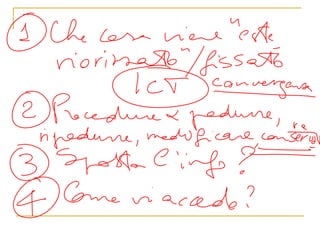 1 Che cosa viene "este
riorizzato"/fissato
ICT convergenza
2 Procedure x produrre,
riprodurre, modificare conservare
3 Sposta l'info?
4 Come vi accedo?